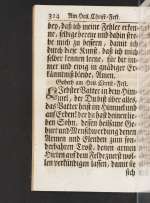 324 Am Heil. Christ-Fest.
bey, daß ich meine Fehler erken-
ne, selbige bereue und dahin stre-
be mich zu bessern, damit ich
durch diese Kunst, daß ich mich
selber kennen lerne, für dir im-
mer und ewig in gnädiger Er-
känntniß bleibe, Amen.
Gebett am Heil. Christ-Fest.
Liebster Vatter in dem Him-
mel, der Du bist über alles,
das Vatter heist im Himmel und
auf Erden! der du hast deinen lie-
ben Sohn, dessen heilsame Ge-
burt und Menschwerdung denen
Armen und Elenden zum son-
derbahren Trost, denen armen
Hirten auf dem Felde zuerst wol-
len verkündigen lassen, damit sie